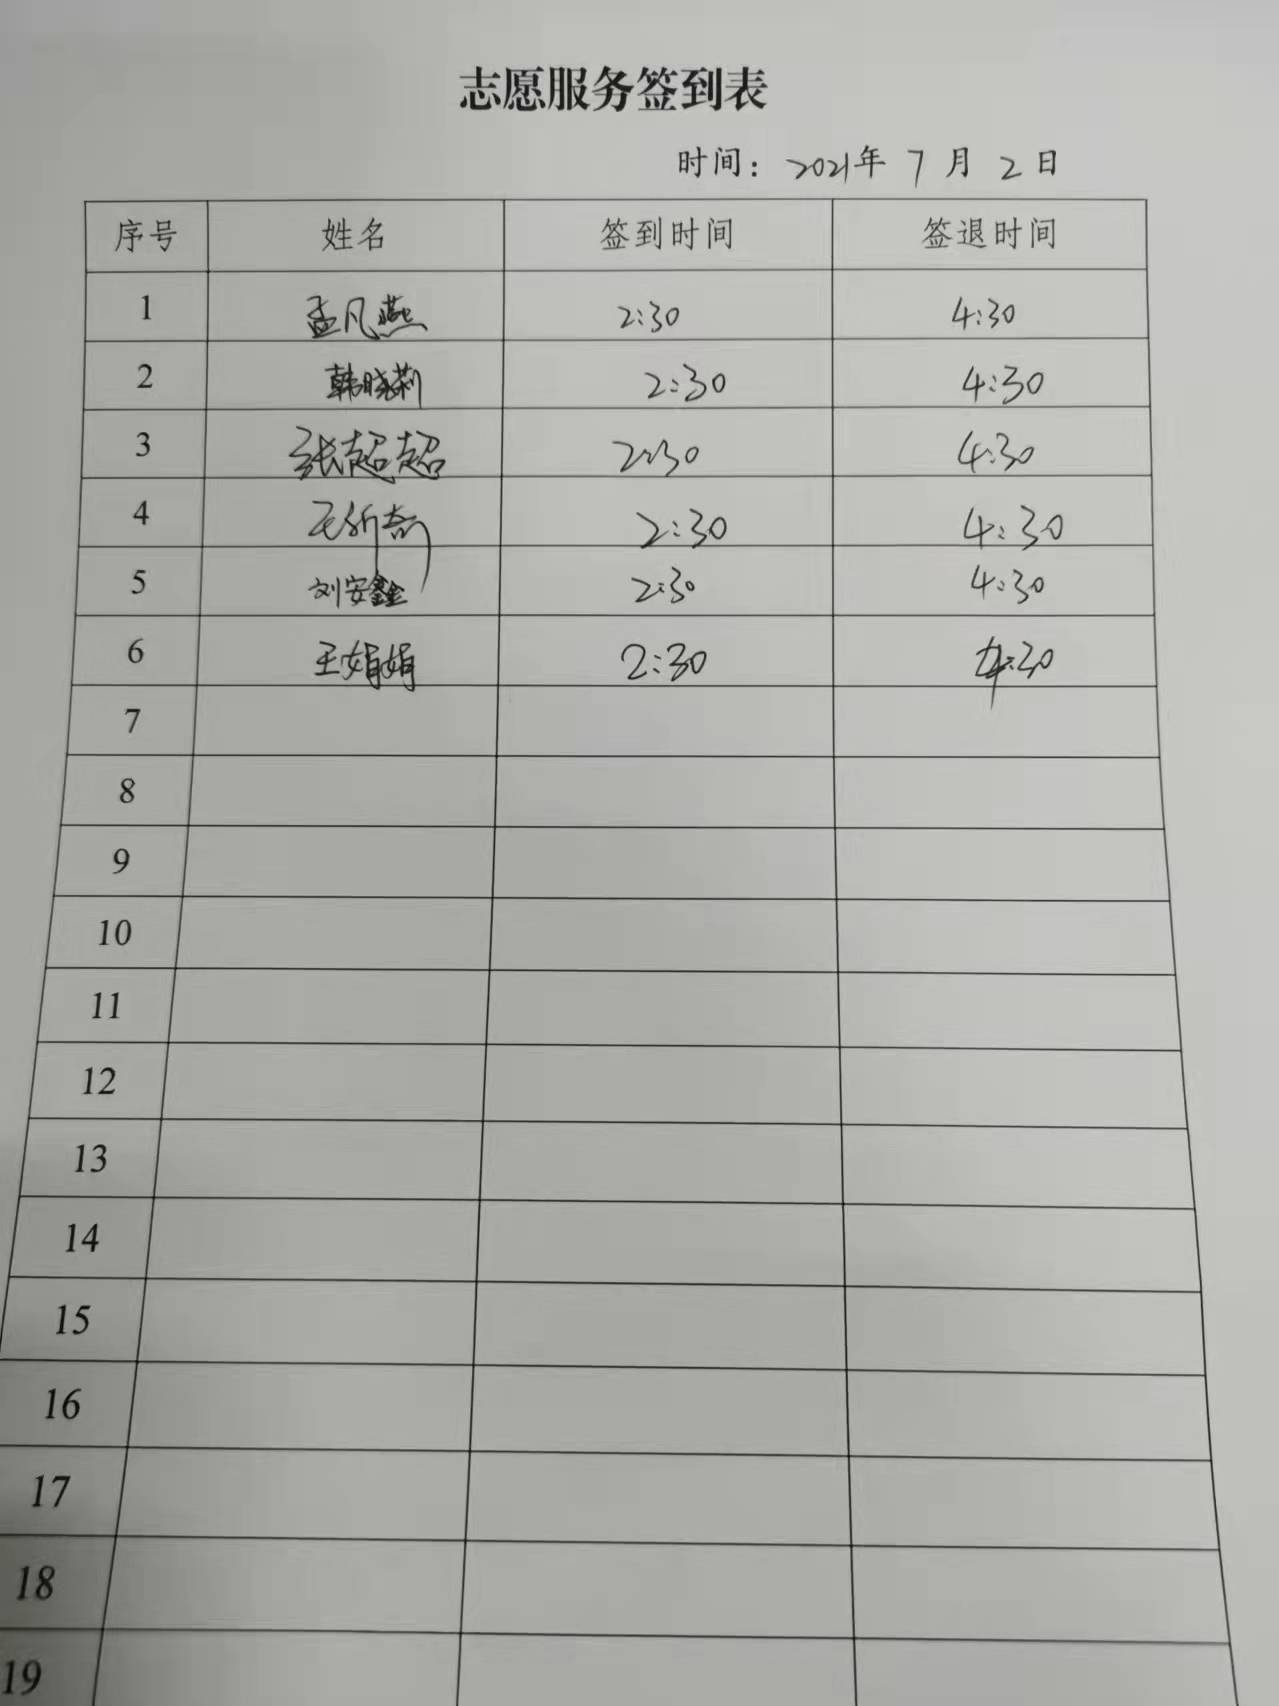 志愿服务签到表
时间：2021年 7月 2日
序号 姓名 签到时间 签退时间
1 孟凡燕 2:30 4:30
2 韩晓莉 2:30 4:30
3 张超超 2:30 4:30
4 2:30 4:30
5 刘安鑫 2:30 4:30
6 王娟娟 2:30 4:30
7
8
9
10
11
12
13
14
15
16
17
18
19